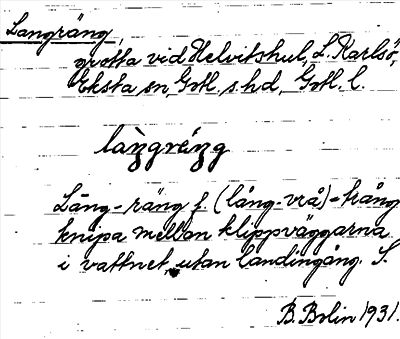 Langräng,
grotta vid Helvitshul, L. Karlsö,
Eksta sn, Gotl. s. hd, Gotl. l.
Lang-räng f. (lång-vrå) = trång
knipa mellan klippväggarna
i vattnet, utan landingång. S.
B. Bolin 1931.